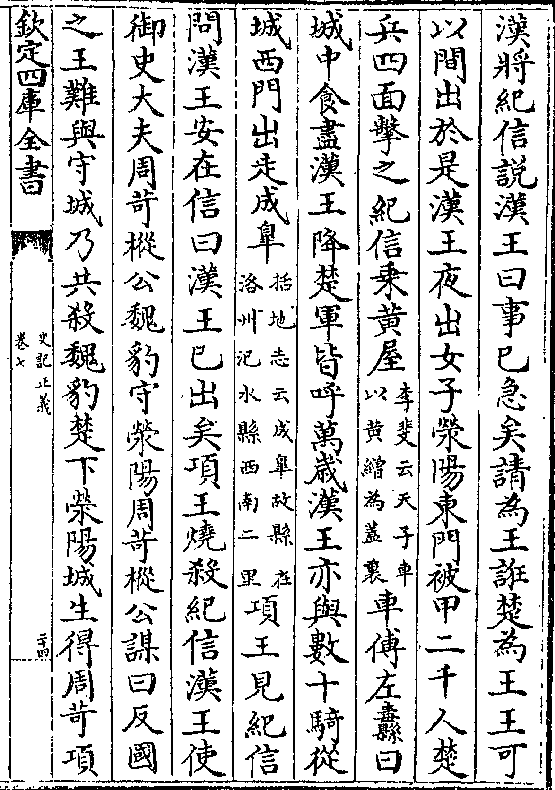 漢將紀信説漢王曰事已急矣請為王誑楚為王王可
以間出於是漢王夜出女子滎陽東門被甲二千人楚
兵四面擊之紀信乗黄屋李斐云天子車以黄繒為蓋裏車傅左纛縣曰
城中食盡漢王降楚軍皆呼萬歳漢王亦與數十騎從
城西門出走成臯括地志云成臯故縣在洛州汜水縣西南二里項王見紀信
問漢王安在信曰漢王已出矣項王燒殺紀信漢王使
御史大夫周苛樅公魏豹守滎陽周苛樅公謀曰反國
之王難與守城乃共殺魏豹楚下滎陽城生得周苛項
欽定四庫全書
史記正義
卷七
二十四